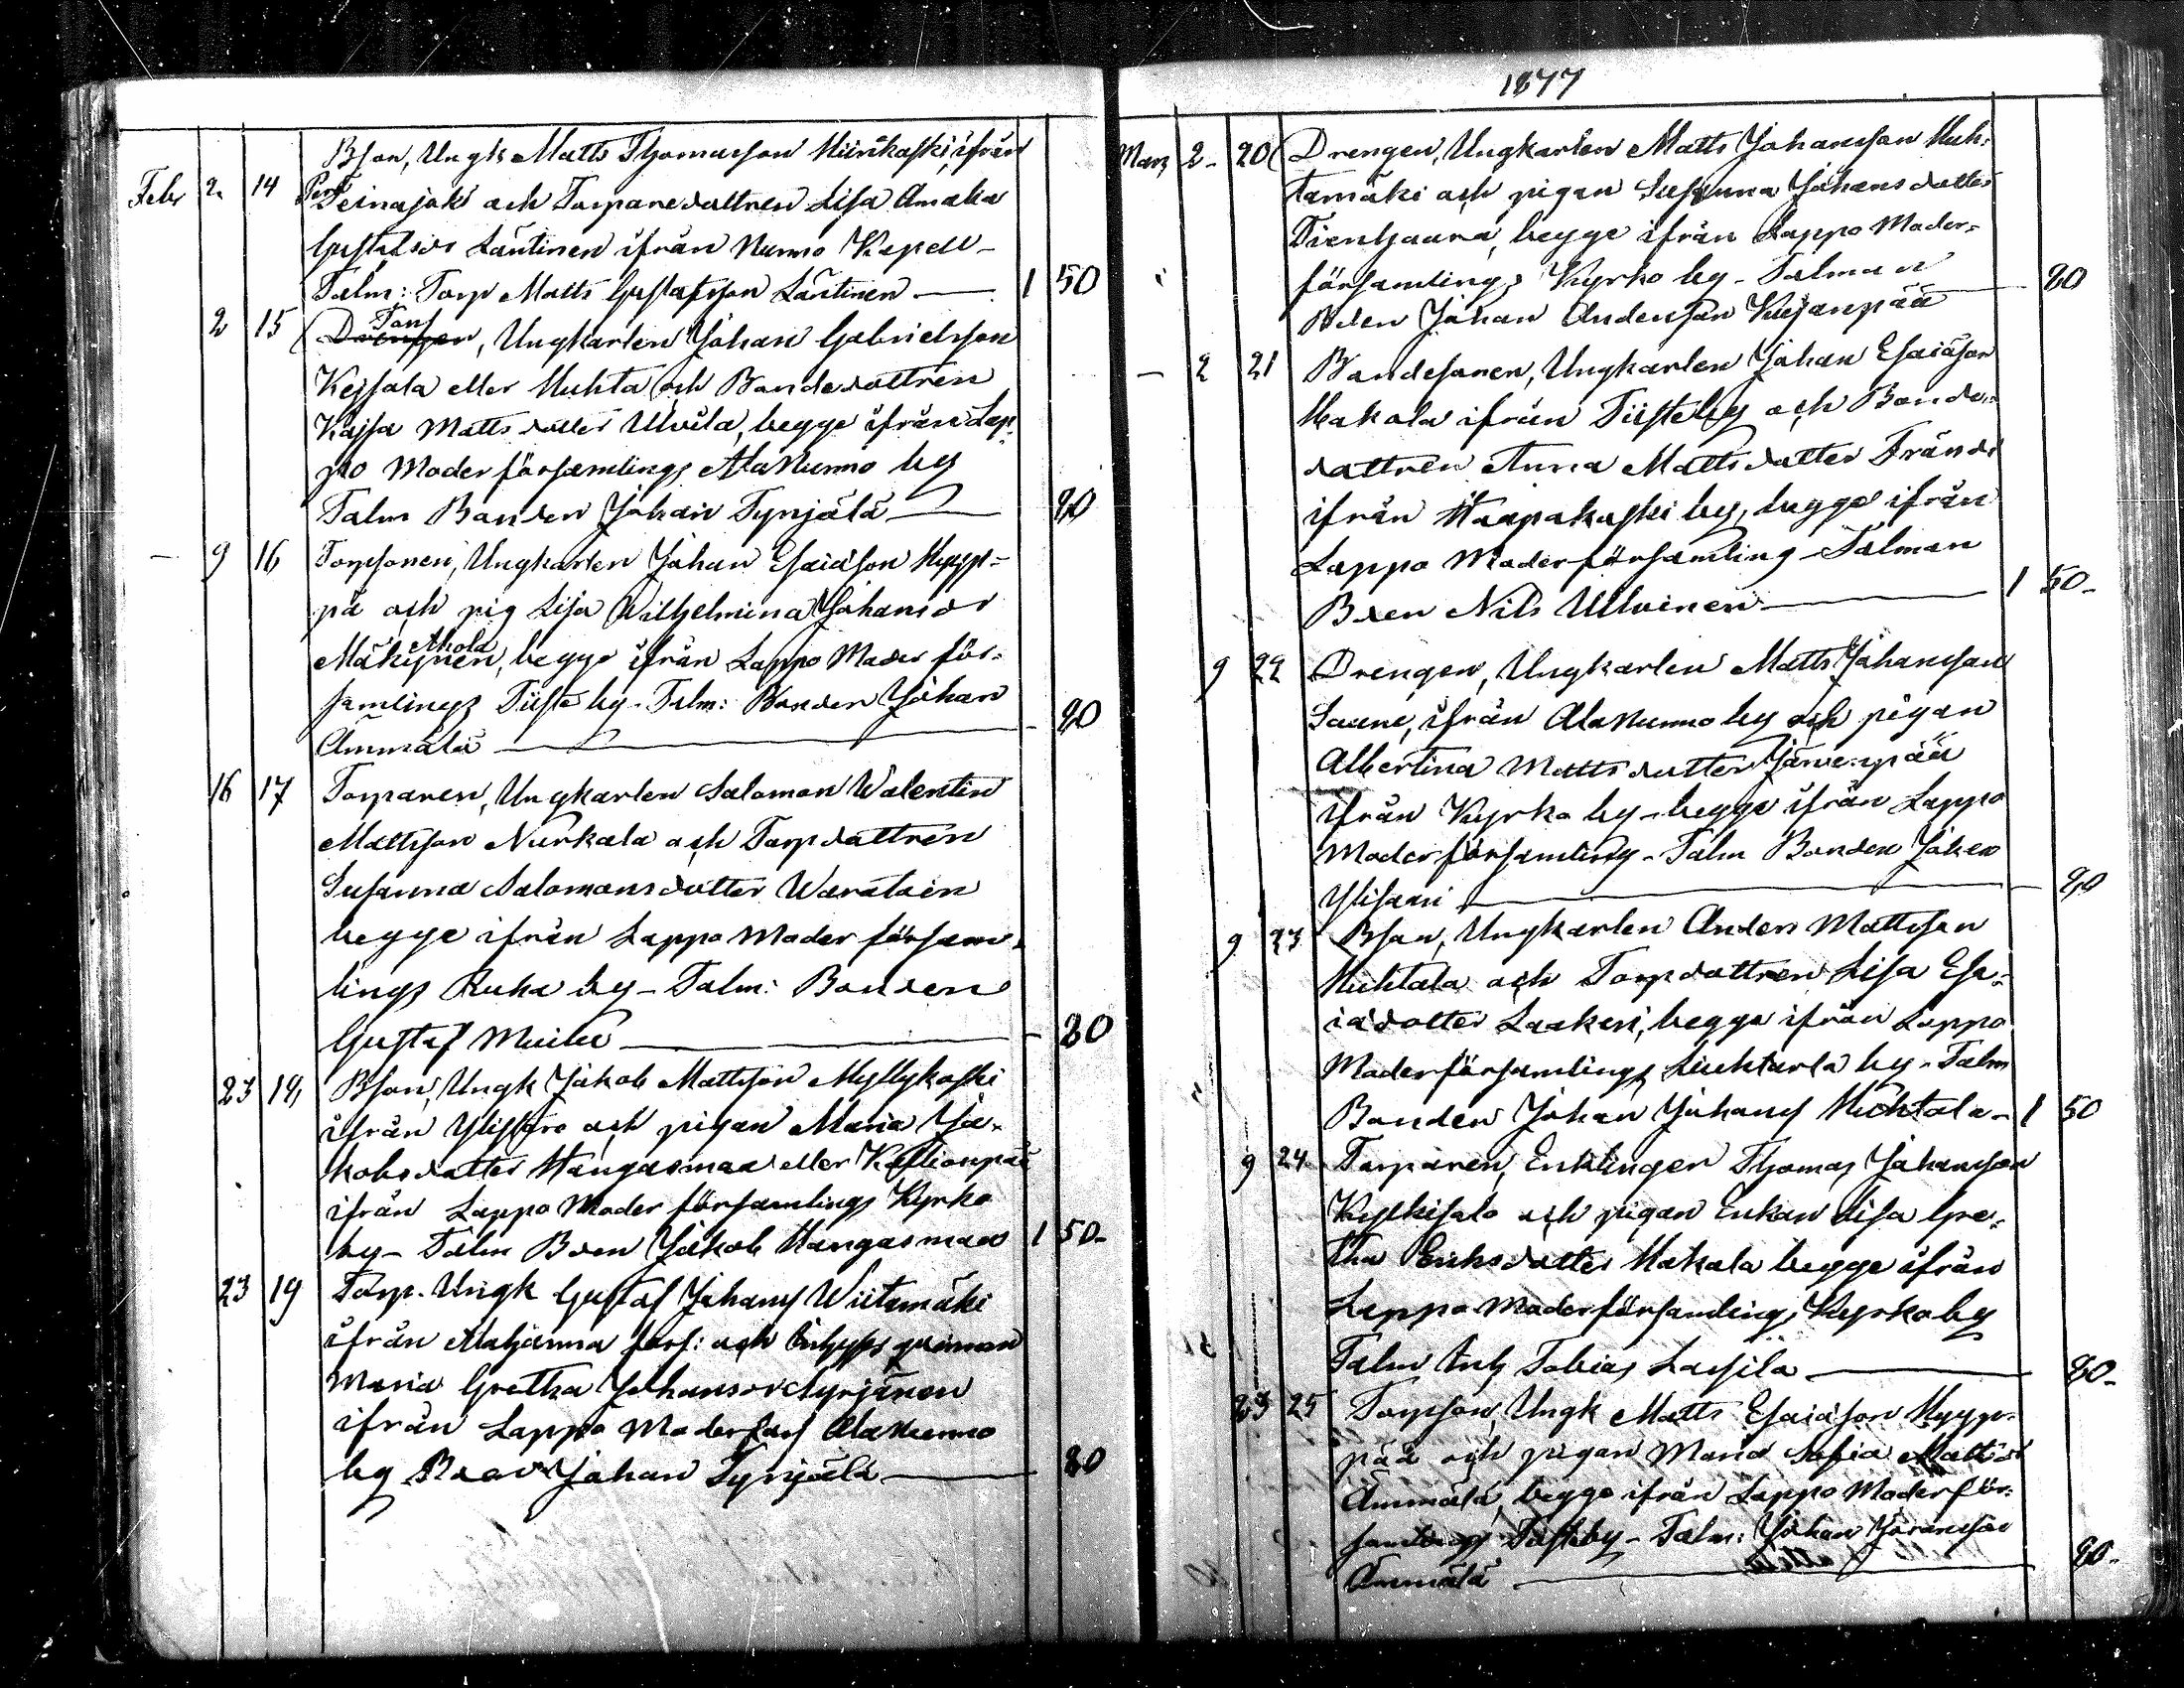 1877
Bson, Ungk Matts Thomasson Kiinikoski, ifrån
Febr 2 14 Peinajoki och Torparedottren Lisa Amalia
Gustafsdr Läntinen ifrån Nurmo Kapell-
Talm: Torp Matts Gustafsson Läntinen — 1 50
Tors
2 15 Drengen, Ungkarlen Johan Gabrielsson
Kessala eller Huhta och Bondedottren
Kajsa Mattsdotter Ulvila, begge ifrån Lap-
po Moderförsamlings Ala Nurmo by
Talm Bonden Johan Tynjälä — 80
— 9 16 Torpsonen, Ungkarlen Johan Esaiäson Hyyp-
pä och pig Lisa Wilhelmina Johansdr
Ahola
Mäkynen, begge ifrån Lappo Moder för-
samlings Tiiste by - Talm: Bonden Johan
Ämmälä — 80
16 17 Torparen, Ungkarlen Salomon Walentin
Mattsson Nurkala och Torpdottren
Susanna Salomonsdotter Waratain
begge ifrån Lappo Moder försam-
lings Ruha by - Talm: Bonden
Gustaf — 80
23 18 Bson, Ungk Jakob Mattsson Myllykoski
ifrån Ylistaro och pigan Maria Ja-
kobsdotter Hangasmaa eller
ifrån Lappo Moder församlings Kyrko
by - Talm Bden Jakob Hangasmaa 1 50-
23 19 Torp. Ungk Gustaf Johans Wiitamäki
ifrån Alahärmä förs: och qvinnan
Maria Gretha Johansdr Syrjänen
ifrån Lappo Moderförs Ala Nurmo
by Johan Tynjälä — 80
Mars 2- 20 Drengen, Ungkarlen Matts Johansson Huh-
tamäki och pigan Susanna Johansdotter
Tienhaara, begge ifrån Lappo Moder-
församlings Kyrko by - Talman — 80
Bden Johan Andersson
— 2 21 Bondesonen, Ungkarlen Johan Esaiäson
Kakola ifrån Tiisteby och Bonde-
dottren Anna Mattsdotter Frändi
ifrån Haapakoski by, begge ifrån
Lappo Moderförsamling - Talman
Bden Nils Ulvinen — 1 50-
9 22 Drengen, Ungkarlen Matts Johansson
Saune, ifrån Ala Nurmo by och pigan
Albertina Mattsdotter Järvenpää
ifrån Kyrko by - begge ifrån Lappo
Moderförsamling - Talm Bonden Johan
Ylisaari — 80
9 23 Bson, Ungkarlen Anders Mattsson
Huhtala och Torpdottren Lisa Esa-
iädotter Laakeri, begge ifrån Lappo
Moderförsamlings Liuhtarla by - Talm
Bonden Johan Johans Huhtala - 1 50
9 24 Torparen, Enklingen Thomas Johansson
Kylkisalo och pigan Enkan Lisa Gre-
tha Eriksdotter Kakola begge ifrån
Lappo Moderförsamlings Kyrkoby
Talm Inh Tobias Lassila — 80-
23 25 Torpson, Ungk Matts Esaiäson Hyyp-
pää och pigan Maria Sofia Mattsdr
Ämmälä, begge ifrån Lappo Moderför-
samlings Tiisteby - Talm: Johan Johansson
Ämmälä — 80-